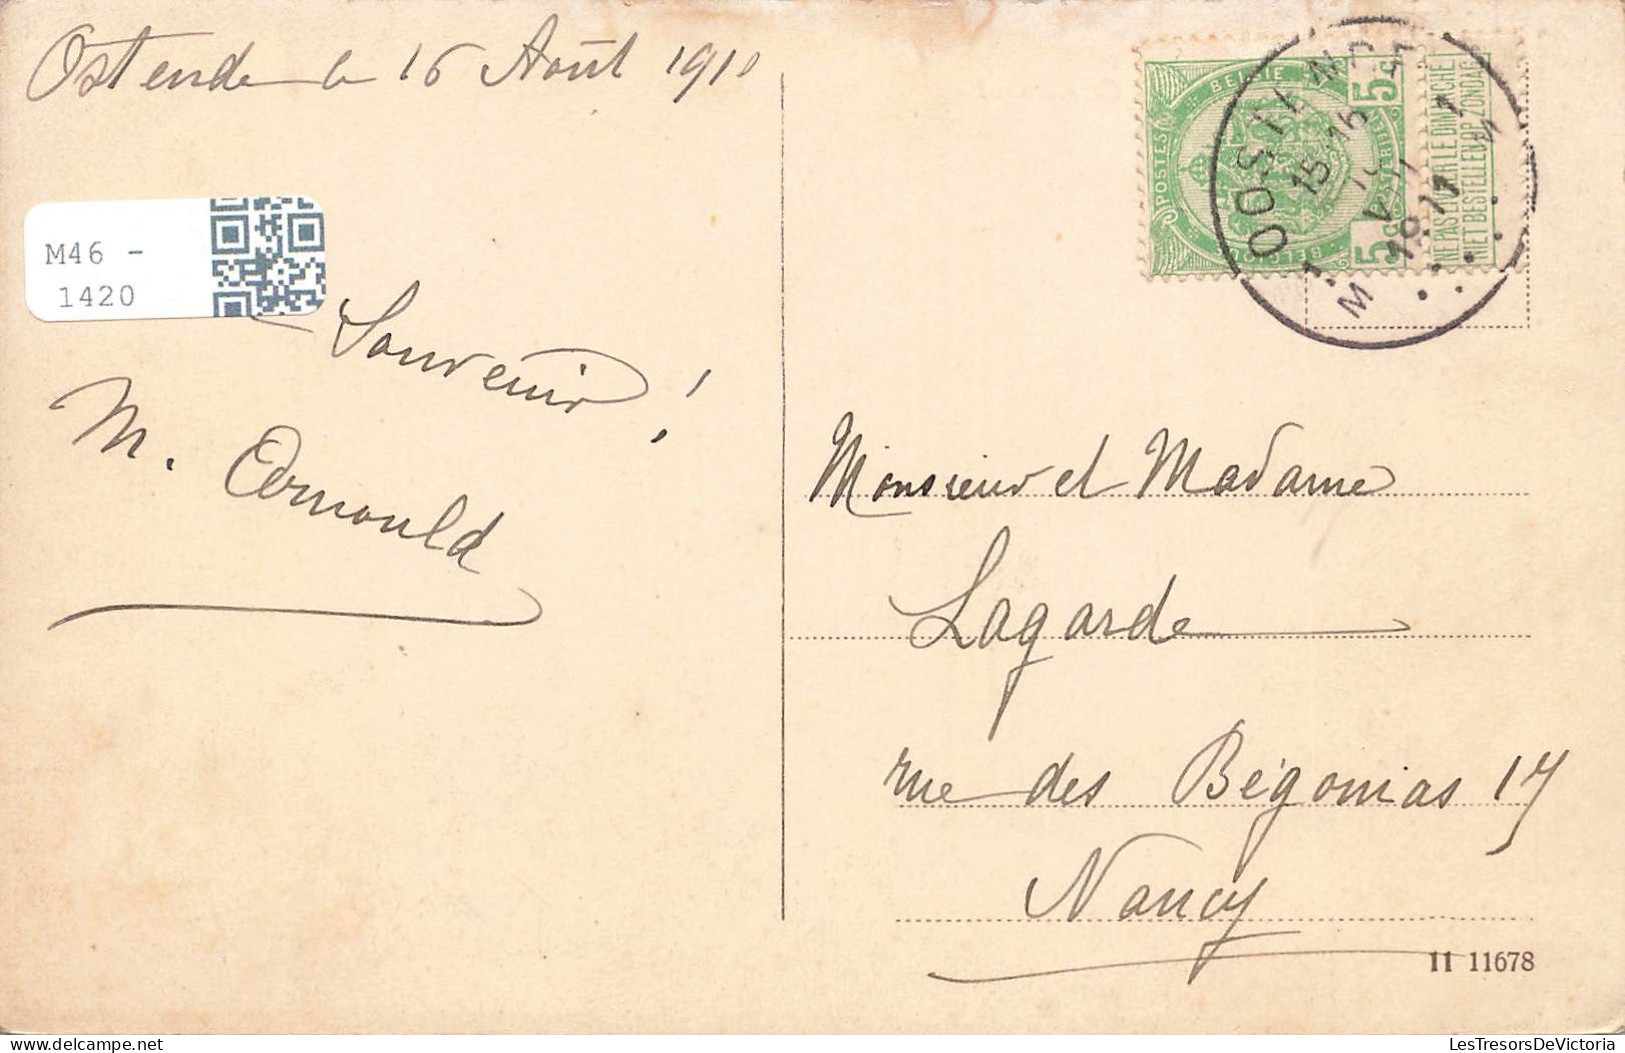 Ostende le 16 Août 1910
M46 -
1420
Souvenir !
M. Ernould
POSTES
BELGIE
BELGIQUE
5c
5c
NE PAS LIVRER LE DIMANCHE
NIET BESTELLEN OP ZONDAG
OOSTENDE
15-16
VIII
Monsieur et Madame
Lagarde
rue des Bégonias 17
Nancy
11 11678
delcampe.net
LesTresorsDeVictoria